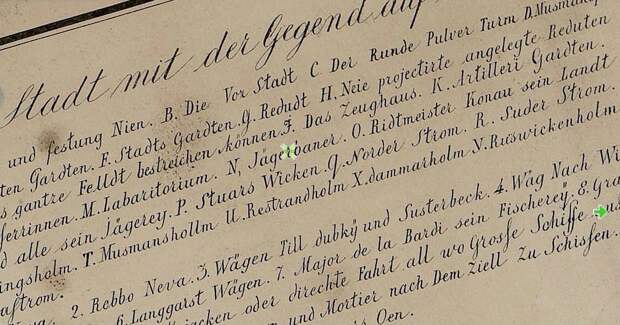 Stadt mit der Gegend auf
und festung Nien. B. Die Vor Stadt C Der Runde Pulver Turm D. Musman
ten Gardten. F. Stadts Gardten. G. Redudt H. Neie projectirte angelegte Reduten
s gantze Felldt bestreichen können. J. Das Zeughaus. K. Artilleri Gardten.
ferrinnen. M. Labaritorium. N, Jägerhaner. O. Ridtmeister Konau sein Landt
d alle sein Jägerey. P. Stuars Wicken. Q. Norder Strom. R. Suder Strom.
ingsholm. T. Musmanshollm U. Restrandholm X. dammarholm N. Ruswickenholm
aftrom.
2. Rebbo Neva. 3. Wägen Till dubky und Susterbeck. 4. Wäg Nach Wi
6. Langgarst Wägen. 7. Major de la Bardi sein Fischerey. 8. Gra
jacken oder directe Fahrt all wo Grosse Schiffe aus
und Mortier nach Dem Ziell Zu Schissen.
Oen.